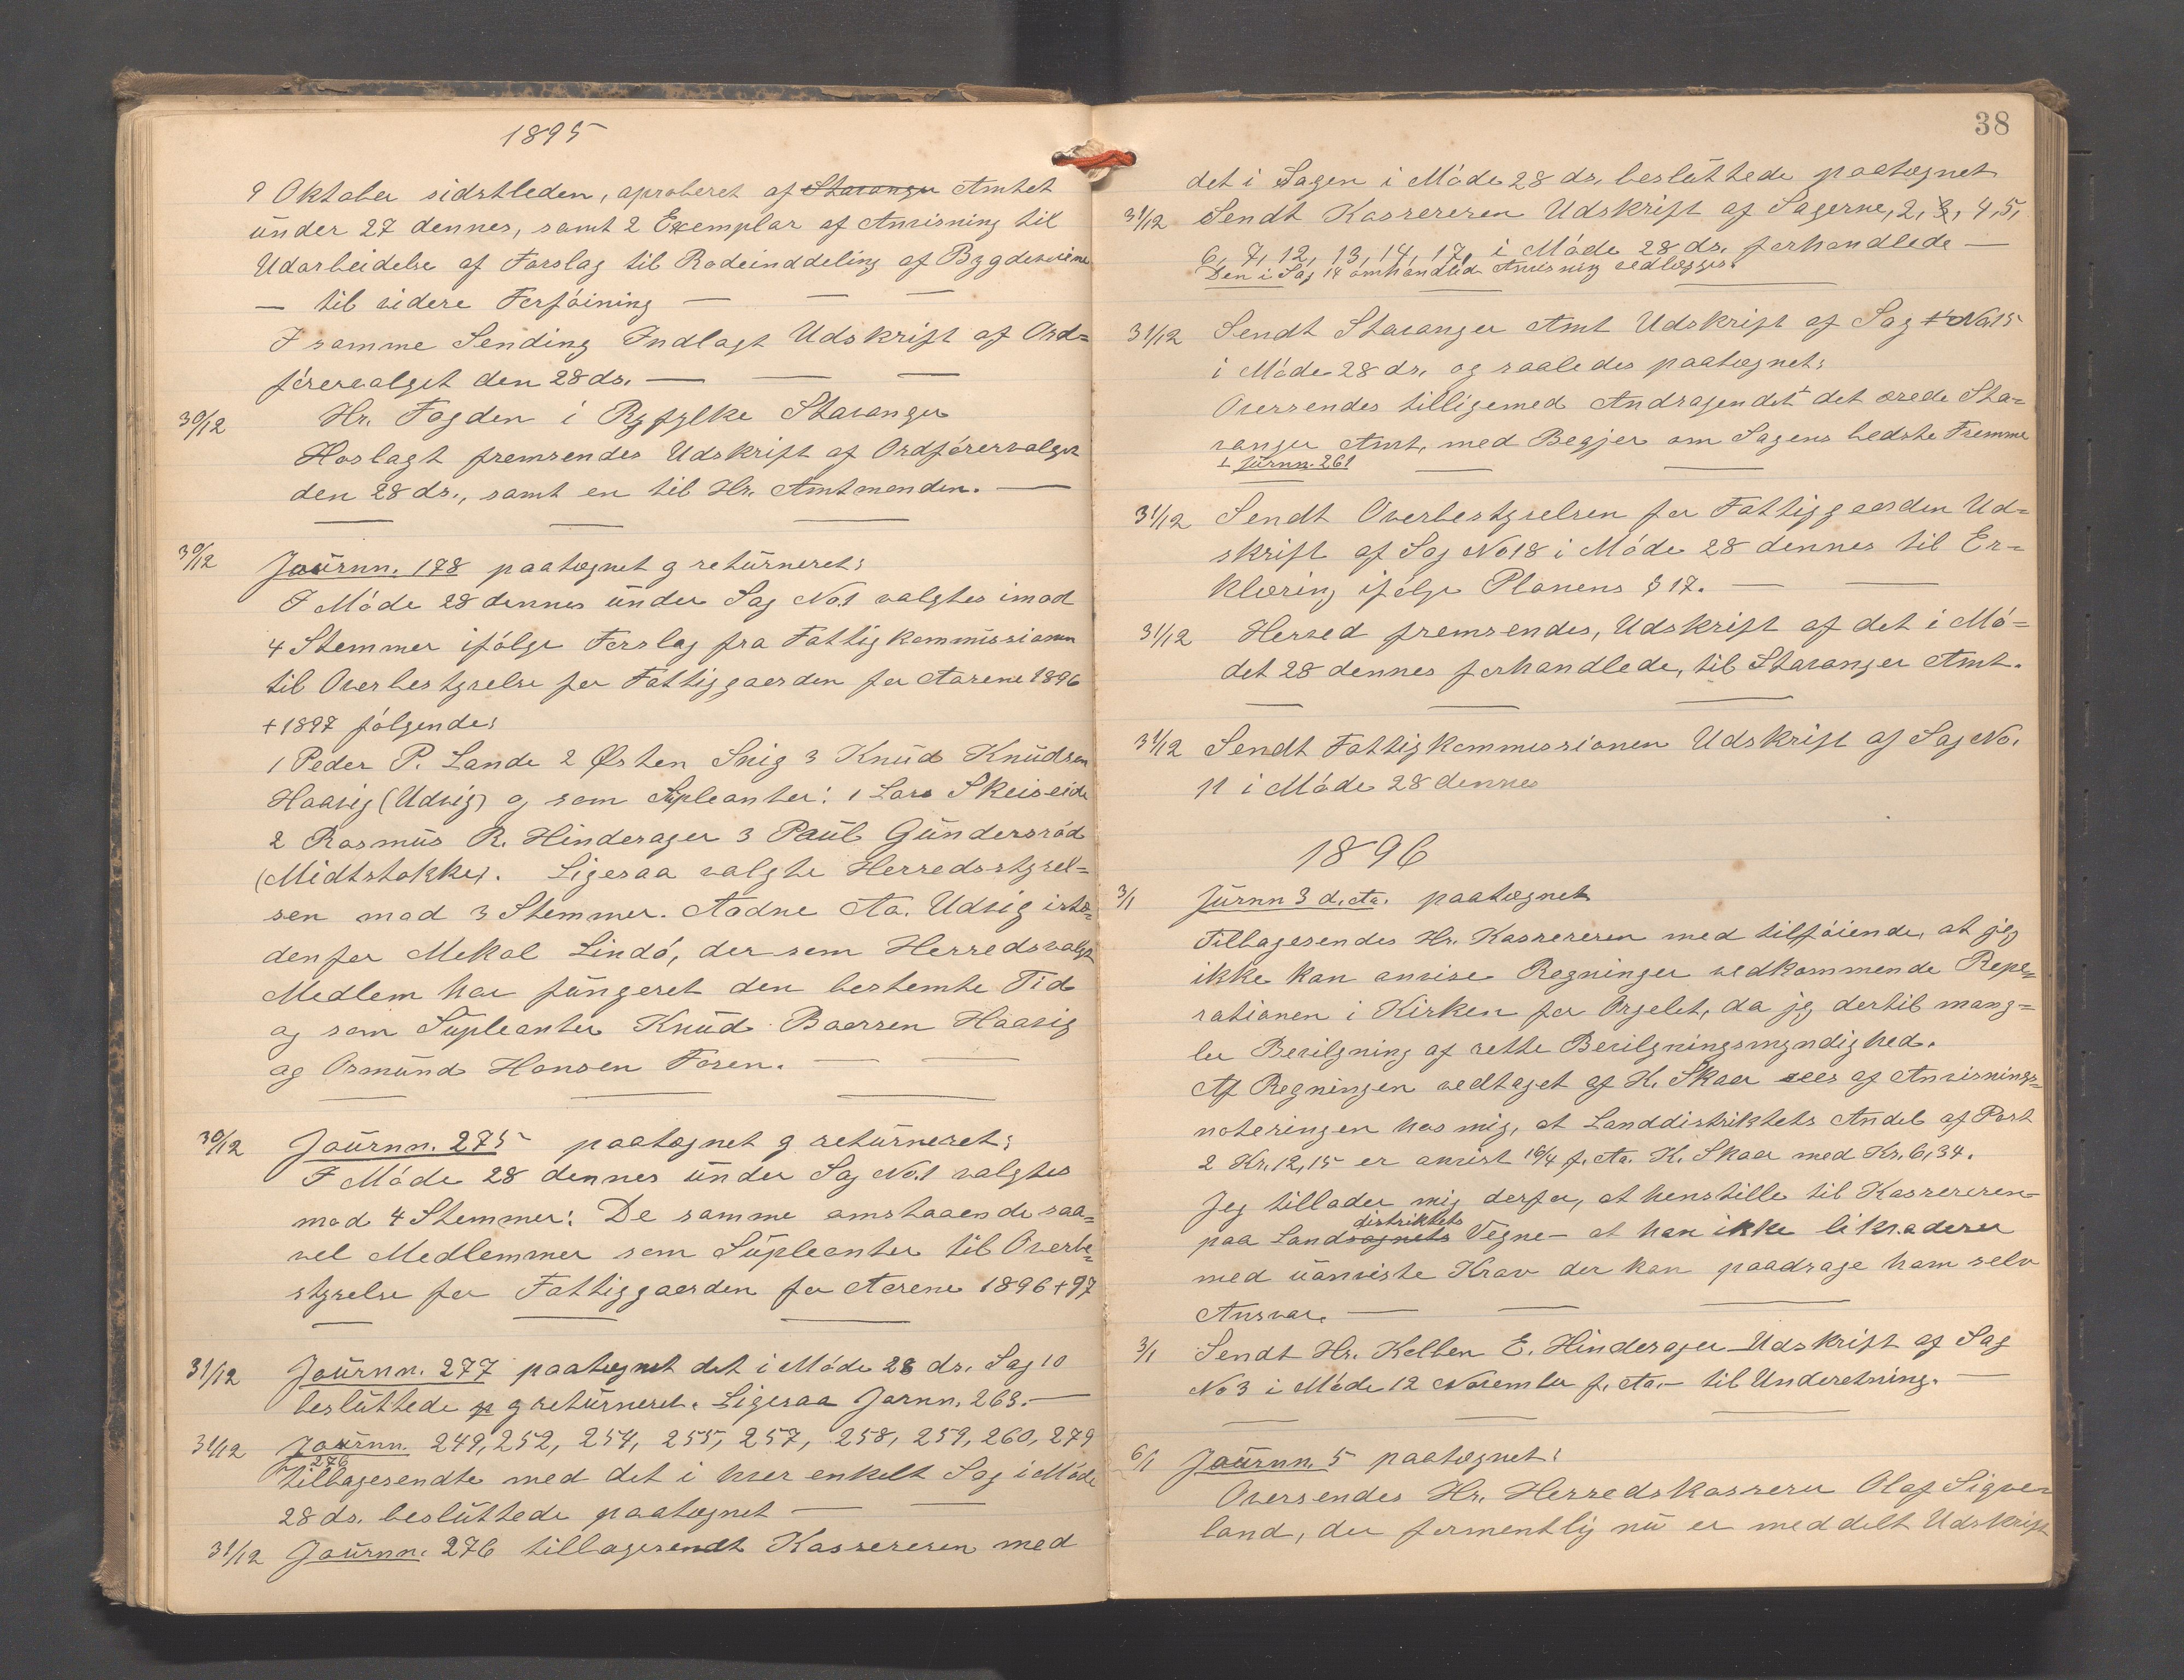 1895
9 Oktober sidstleden, aproberet af Stavanger Amtet
ünder 27 dennes, samt 2 Exemplar af Anvisning til
Udarbeidelse af Forslag til Rodeinddeling af Bygdeveiene
— til videre Forføining — — —
I samme Sending Indlagt Udskrift af Ord=
førervalget den 28 ds. — — —
30/12 Hr. Fogden i Ryfylke Stavanger
Hoslagt fremsendes Udskrift af Ordførervalget
den 28 ds., samt en til Hr. Amtmanden. —
30/12 Joürnn. 178 paategnet g retürneret:
I Møde 28 dennes ünder Sag No. 1 valgtes imod
4 Stemmer ifølge Forslag fra Fattigkommissionen
til Overbestyrelse for Fattiggaarden for Aarene 1896
+ 1897 følgende:
1 Peder P. Lande 2 Østen Snig 3 Knüd Knüdsen
Haavig (Udvig) og som Süpleanter: 1 Lars Skeiseide
2 Rasmüs R. Hinderager 3 Paül Gündersrød
(Midtstokke). Ligesaa valgte Herredsstyrel=
sen mod 3 Stemmer. Aadne Aa. Udvig iste=
denfor Mekal Lindø, der som Herredsvalgt
Medlem har füngeret den bestemte Tid
og som Süpleanter Knüd Baarsen Haavig
og Osmünd Hansen Fosen. — —
30/12 Joürnn. 275 paategnet g retürneret:
I Møde 28 dennes ünder Sag No. 1 valgtes
mod 4 Stemmer: De samme omstaaende saa=
vel Medlemmer som Süpleanter til Overbe=
styrelse for Fattiggaarden for Aarene 1896 + 97
31/12 Joürnn. 277 paategnet det i Møde 28 ds. Sag 10
beslüttede g retürneret. Ligesaa Jornn. 263. —
31/12 Joürnn. 249, 252, 254, 255, 257, 258, 259, 260, 279
276
tilbagesendte med det i hver enkelt Sag i Møde
28 ds. beslüttede paategnet — —
31/12 Joürnn. 276 tilbagesendt Kassereren med
38
det i Sagen i Møde 28 ds. beslüttede paategnet
31/12 Sendt Kassereren Udskrift af Sagerne, 2, 3, 4, 5,
6, 7, 12, 13, 14, 17, i Møde 28 ds. forhandlede —
Den i Sag 14 omhandled Anvisning vedlægges.
31/12 Sendt Stavanger Amt Udskrift af Sag No 15
i Møde 28 ds. og saaledes paategnet:
Oversendes tilligemed Andragendet ⊥ det ærede Sta=
vanger Amt, med Begjær om Sagens bedste Fremme
⊥ Jürnn. 261
31/12 Sendt Overbestyrelsen for Fattiggaarden Ud=
skrift af Sag No 18 i Møde 28 dennes til Er=
klæring ifølge Planens § 17. — —
31/12 Herved fremsendes, Udskrift af det i Mø=
det 28 dennes forhandlede, til Stavanger Amt.
31/12 Sendt Fattigkommissionen Udskrift af Sag No.
11 i Møde 28 dennes
1896
3/1 Jürnn 3 d. Aa. paategnet
Tilbagesendes Hr. Kassereren med tilføiende, at jeg
ikke kan anvise Regninger vedkommende Repe=
rationen i Kirken for Orgelet, da jeg dertil mang=
ler Bevilgning af rette Bevilgningsmyndighed.
Af Regningen vedtaget af H. Skaar sees af Anvisnings=
noteringen hos mig, at Landdistriktets Andel af Post
2 Kr. 12,15 er anvist 16/4 f. Aa. K. Skaar med Kr. 6,34.
Jeg tillader mig derfor, at henstille til Kassereren —
distriktets
paa Landsognets Vegne — at han ikke likvaderer
med üanviste Krav der kan paadrage ham selv
Ansvar. — — —
3/1 Sendt Hr. Kelben E. Hinderager Udskrift af Sag
No 3 i Møde 12 November f. Aa. — til Underetning. —
6/1 Joürnn. 5 paategnet:
Oversendes Hr. Herredskasserer Olaf Sigve=
land, der formentlig nü er meddelt Udskrift